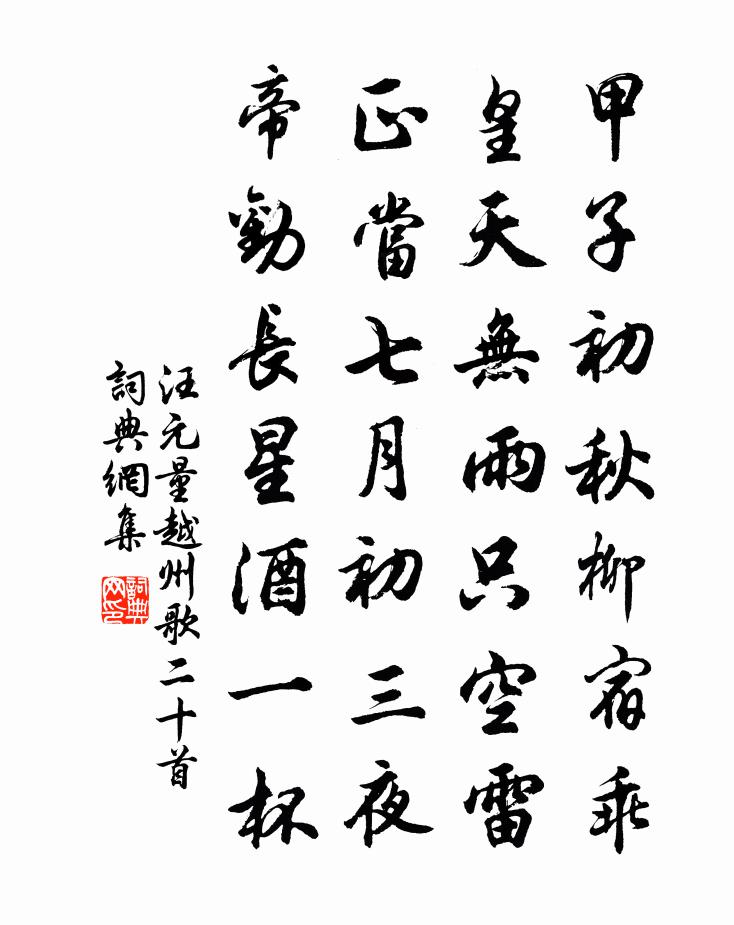 甲子初秋柳宿乖
皇天無雨只空雷
正當七月初三夜
帝勸長星酒一杯
汪元量越州歌二十首
詞典網集
詞典网印